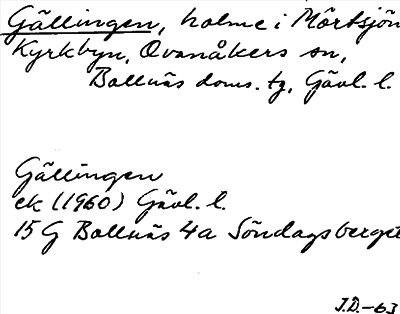 Gällingen, holme i Mörtsjön
Kyrkbyn, Ovanåkers sn,
Bollnäs doms. tg, Gävl. l.
Gällingen
ek (1960) Gävl. l.
15 G Bollnäs 4a Söndagsberget
J.D.-63